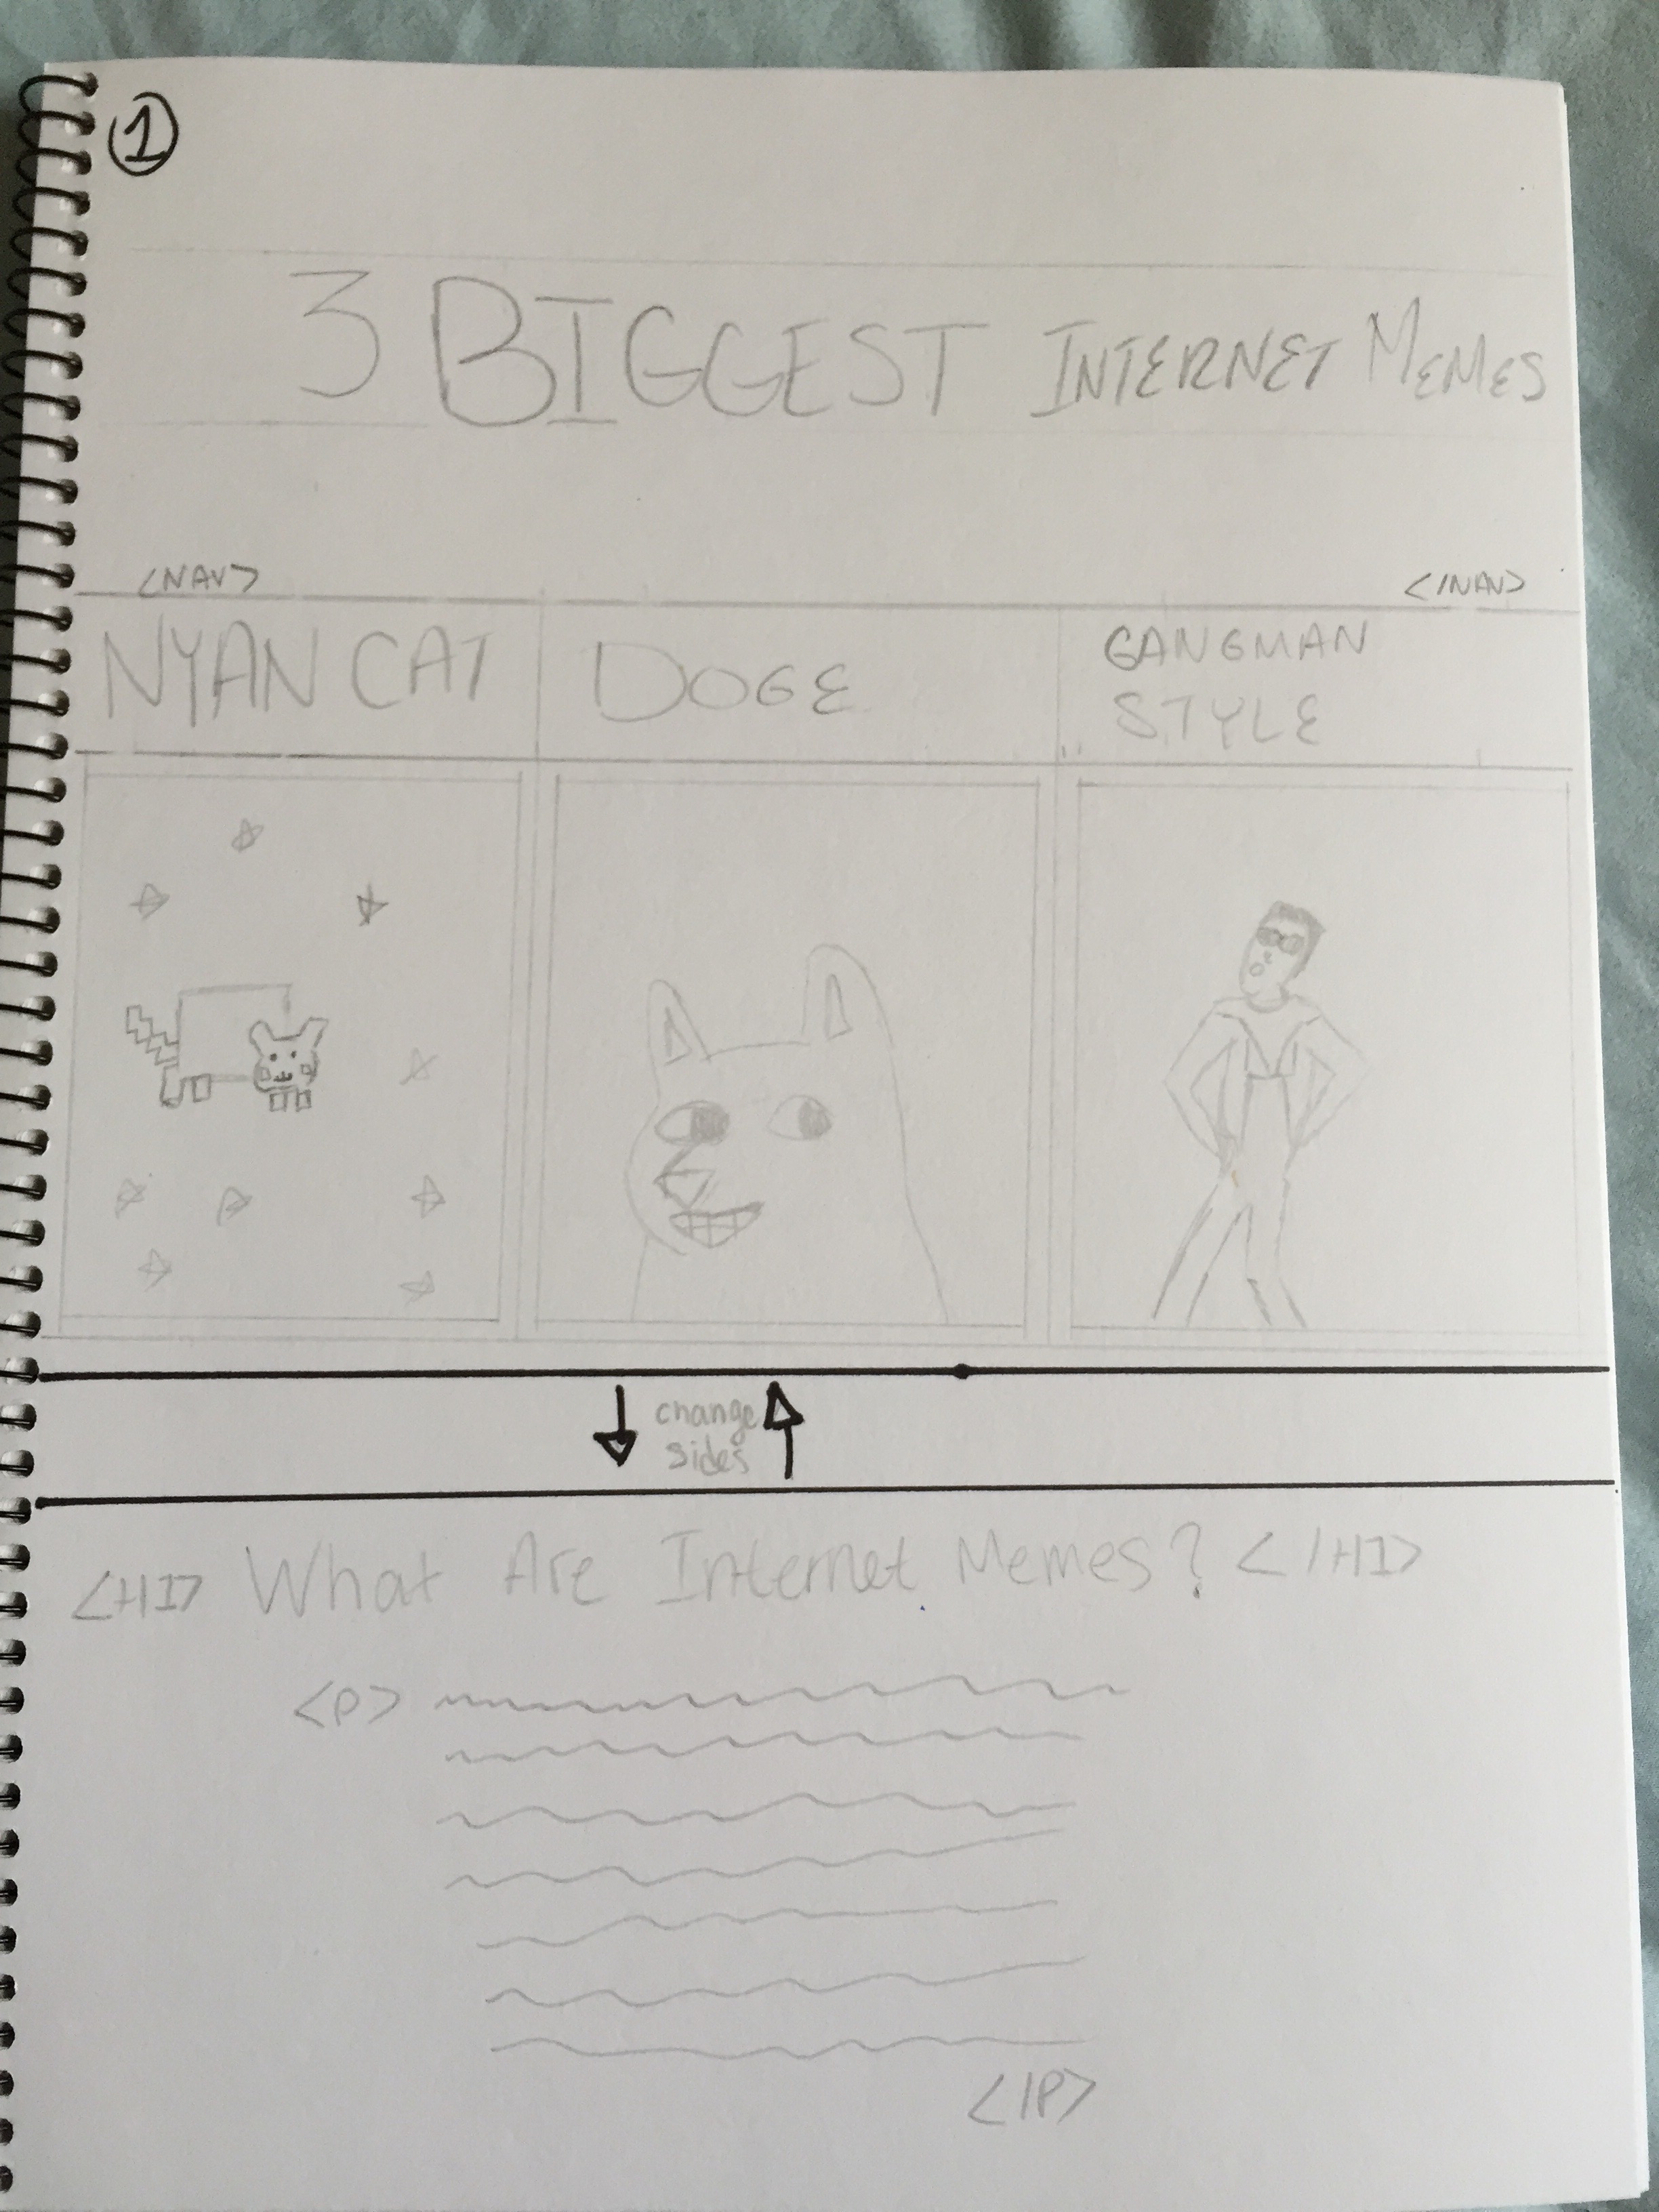 1
3 BIGGEST INTERNET MEMES
<NAV> </NAV>
NYAN CAT DOGE GANGMAN
STYLE
change
sides
<H1> What Are Internet Memes? </H1>
<P>
</P>